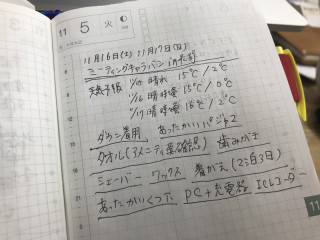 11 5 火
11月16日(土) 11月17日(日)
ミーティングキャラバン in
天気予報 11/15 晴れ 15℃/2℃
11/16 晴時々曇 15℃/0℃
11/17 晴時々曇 16℃/2℃
ダウン着用 あったかいパジャマ
タオル(アメニティ要確認) 歯みがき
シェーバー ワックス 着がえ(2泊3日)
あったかいくつ下 PC+充電器 ICレコーダー
11